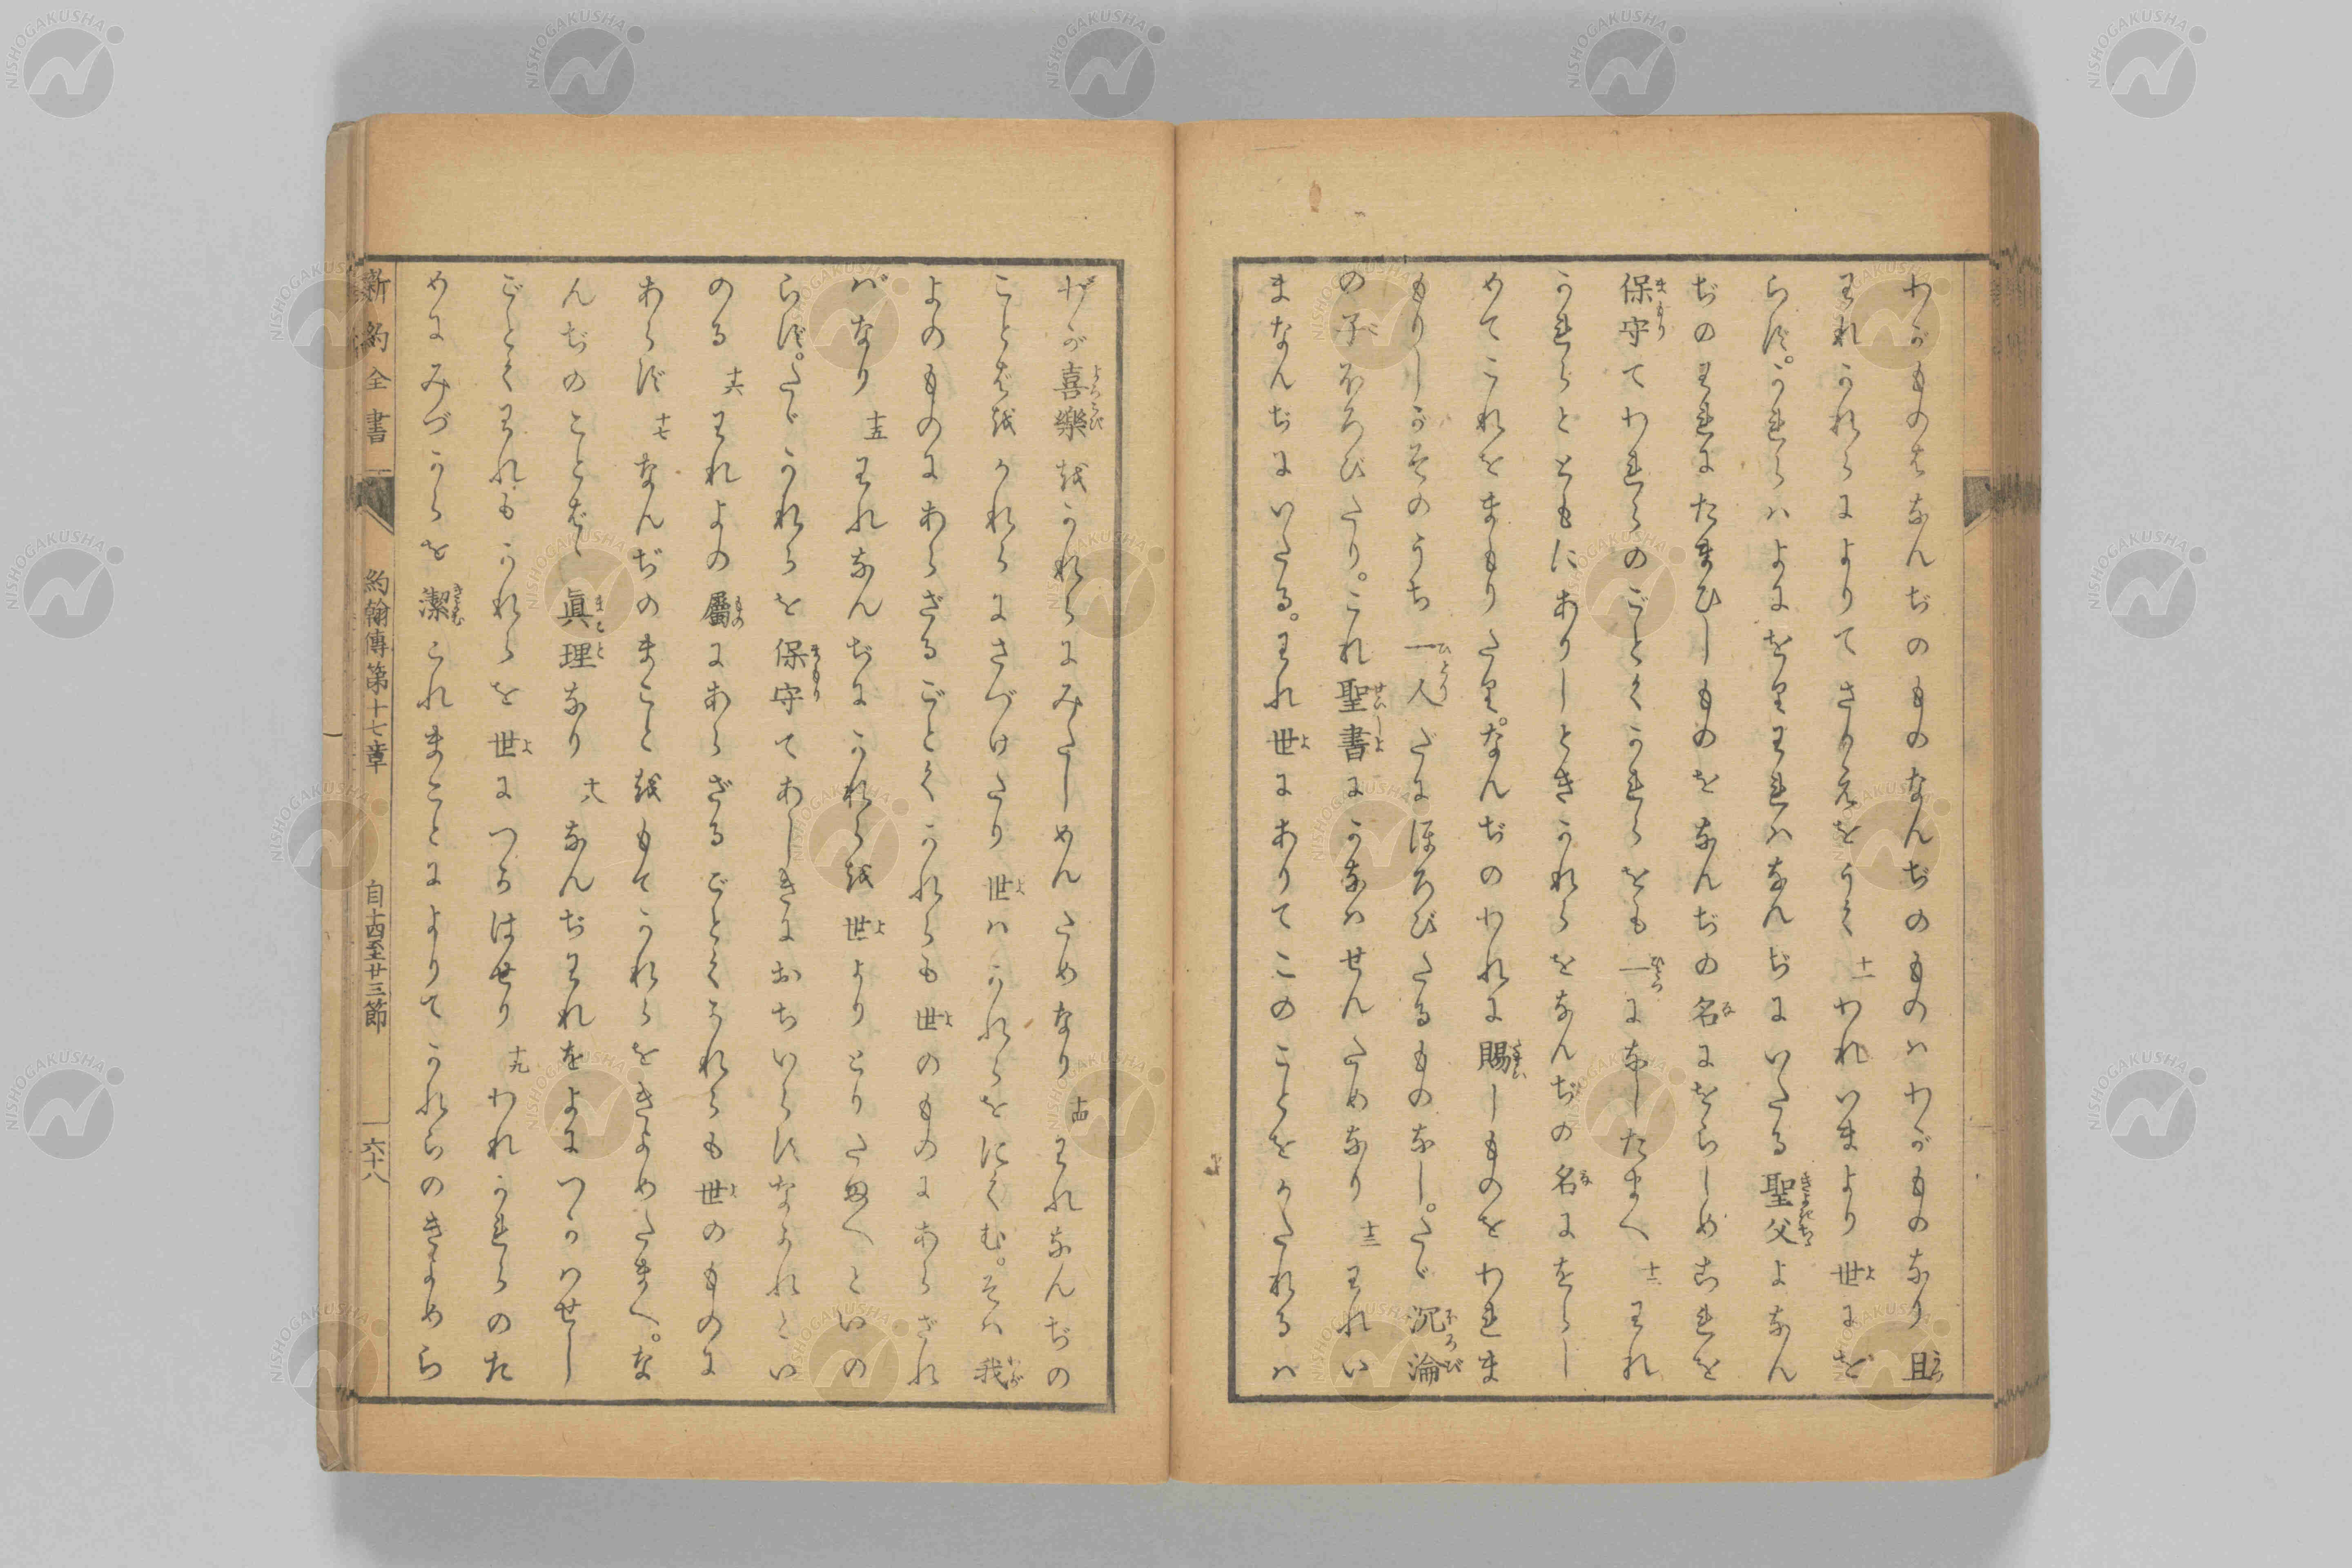 わがものはなんぢのものなんぢのものハわがものなり且
われかれらによりてさかえをうく 十一 われいまより世にを
らず。かれらハよにをりわれハなんぢにいたる聖父よなん
ぢのわれにたまひしものをなんぢの名にをらしめこれを
保守てわれらのごとくかれらをも一になしたまへ 十二 われ
かれらとともにありしときかれらをなんぢの名にをらし
めてこれをまもりたり。なんぢのわれに賜しものをわれま
もりしがそのうち一人だにほろびたるものなし。たゞ沉淪
の子ほろびたり。これ聖書にかなハせんためなり 十三 われい
まなんぢにいたる。われ世にありてこのことをかたれるハ
わが喜樂をかれらにみたしめんためなり 十四 われなんぢの
ことばをかれらにさづけたり世ハかれらをにくむ。そハ我
よのものにあらざるごとくかれらも世のものにあらざれ
バなり 十五 われなんぢにかれらを世よりとりたまへといの
らず。たゞかれらを保守てあしきにおちいらすなかれとい
のる 十六 われよの屬にあらざるごとくかれらも世のものに
あらず 十七 なんぢのまことをもてかれらをきよめたまへ。な
んぢのことばハ眞理なり 十八 なんぢわれをよにつかハせし
ごとくわれもかれらを世につかはせり 十九 われかれらのた
めにみづからを潔これまことによりてかれらのきよめら
新約全書 約翰傳第十七章 自十四至廿三節 六十八